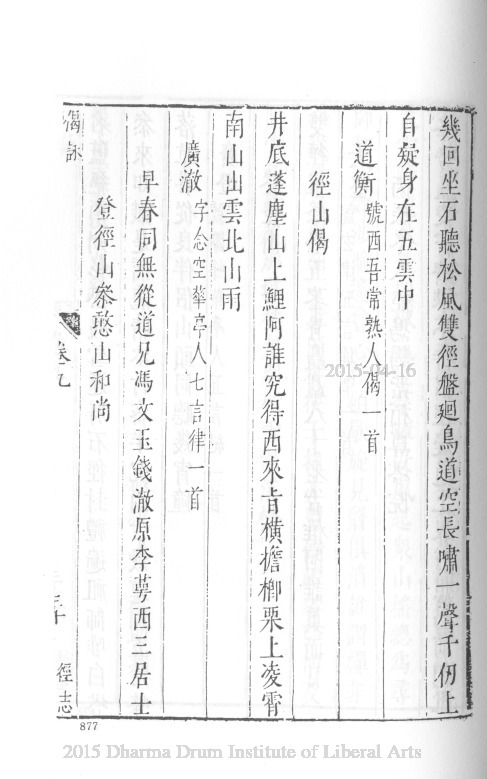 幾回坐石聽松風雙徑盤迴鳥道空長嘯一聲千仞上
自疑身在五雲中
道衡號西吾常熟人偈一首
徑山偈
井底蓬塵山上鯉阿誰究得西來旨橫擔榔栗上凌霄
南山出雲北山雨
廣澈字念空華亭人七言律一首
早春同無從道兄馮文玉錢澈原李萼西三居士
登徑山叅憨山和尚
偈詠
卷九
三十
徑志
877
2015-04-16
2015 Dharma Drum Institute of Liberal Arts